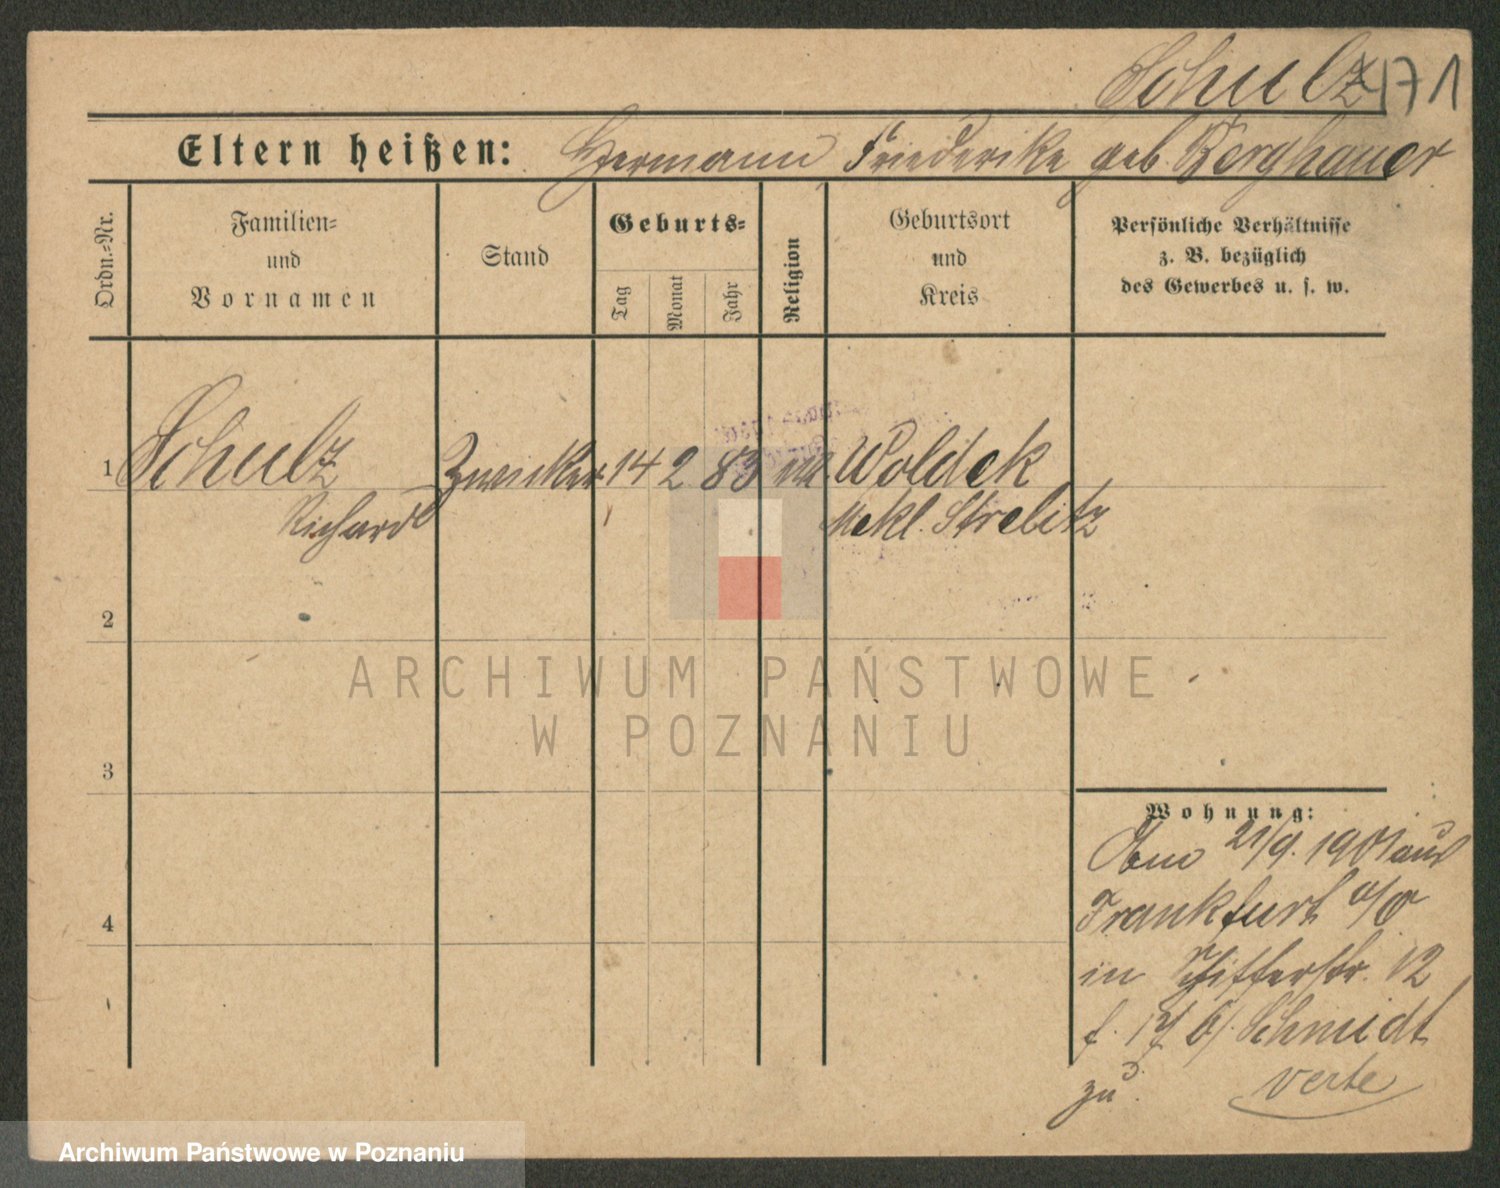 Schulz 471
Eltern heißen: Hermann Friederike geb. Berghauer
Ordn.-Nr.
Familien-
und
Vornamen
Stand
Geburts-
Tag
Monat
Jahr
Religion
Geburtsort
und
Kreis
Persönliche Verhältnisse
z. B. bezüglich
des Gewerbes u. s. w.
1 Schulz 14 2 83 Woldek
Richard Mekl. Strelitz
2
3
4
ARCHIWUM PAŃSTWOWE
W POZNANIU
Wohnung:
21/9. 1901 aus
Frankfurt a/O
in Schifferstr. 12
b/ Schmidt
zu.
verte
Archiwum Państwowe w Poznaniu